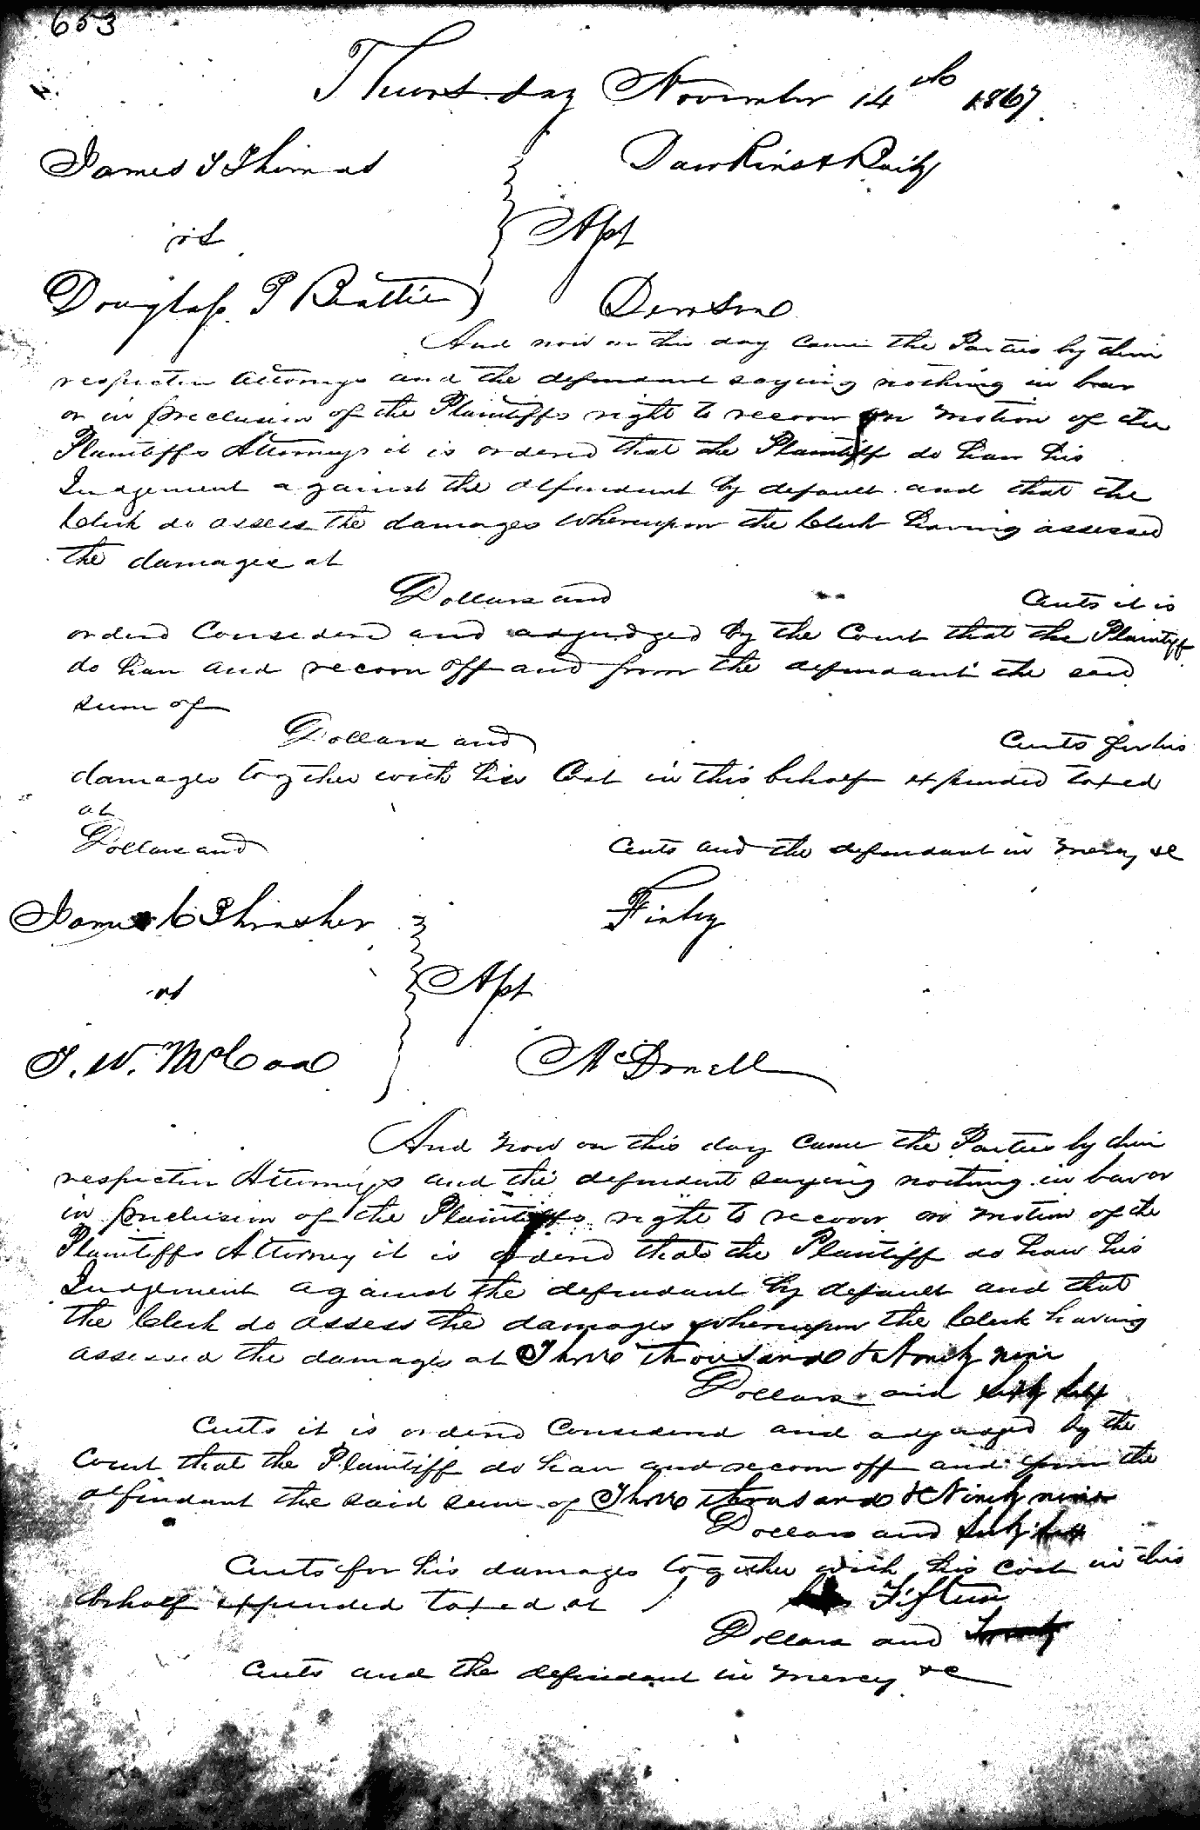 653
Thursday November 14th 1867.
James T Thomas
vs
Douglass P Beattie
Apt
Dawkins &
Denson
And now on this day came the Parties by their
respective Attorneys and the defendant saying nothing in bar
or in preclusion of the Plaintiffs right to recover on motion of the
Plaintiffs Attorneys it is ordered that the Plaintiff do have his
Judgement against the defendant by default and that the
Clerk do assess the damages whereupon the Clerk having assessed
the damages at
Dollars and Cents it is
ordered Considered and adjudged by the Court that the Plaintiff
do have and recover off and from the defendant the said
sum of
Dollars and Cents for his
damages together with his Cost in this behalf expended taxed
at
Dollars and Cents and the defendant in mercy &c
James C Thrasher
vs
J. W. McCoa
Apt
Finley
McDonell
And now on this day came the Parties by their
respective Attorneys and the defendant saying nothing in bar or
in preclusion of the Plaintiffs right to recover on motion of the
Plaintiffs Attorney it is ordered that the Plaintiff do have his
Judgement against the defendant by default and that
the Clerk do assess the damages whereupon the Clerk having
assessed the damages at Three thousand & Ninety nine
Dollars and Sixty Six
Cents it is ordered Considered and adjudged by the
Court that the Plaintiff do have and recover off and from the
defendant the said sum of Three thousand & Ninety nine
Dollars and Sixty Six
Cents for his damages together with his cost in this
behalf expended taxed at Fifteen
Dollars and
Cents and the defendant in mercy &c